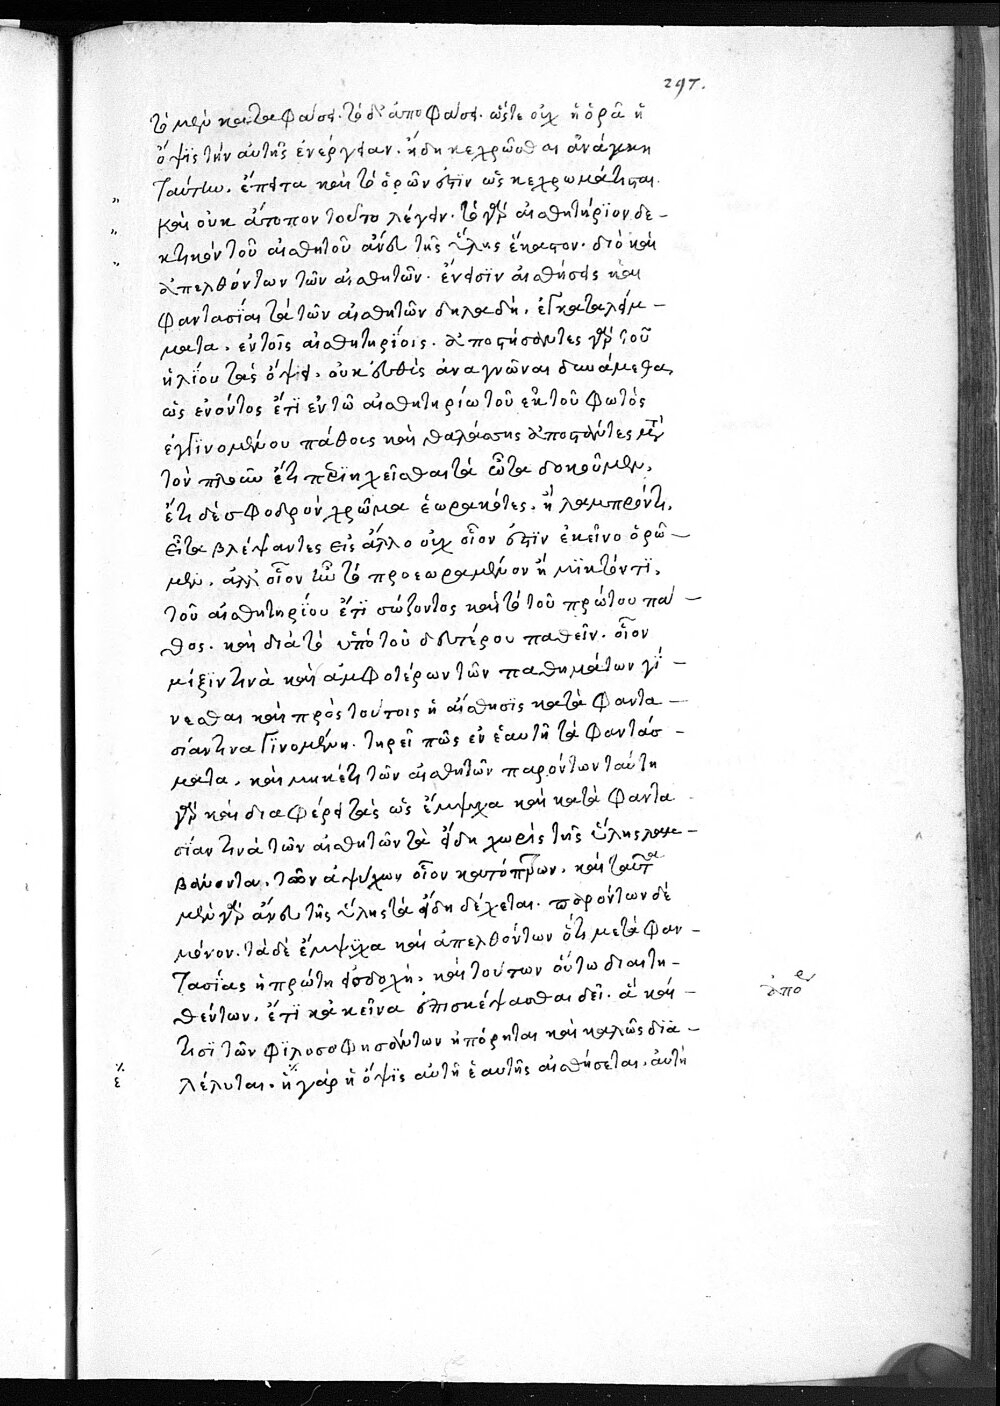 297.
τὸ μὲν καταφάσει· τὸ δ' ἀποφάσει· ὥστε οὐχ ἡ ὁρᾶ ἡ
ὄψις τὴν αὐτῆς ἐνέργειαν. ἤδη κεχρῶσθαι ἀνάγκη
ταύτην. ἔπειτα καὶ τὸ ὁρῶν ἐστὶν ὡς κεχρωμάτισται.
καὶ οὐκ ἄτοπον τοῦτο λέγειν. τὸ γὰρ αἰσθητήριον δε-
κτικὸν τοῦ αἰσθητοῦ ἄνευ τῆς ὕλης ἕκαστον. διὸ καὶ
ἀπελθόντων τῶν αἰσθητῶν. ἔνεισιν αἰσθήσεις καὶ
φαντασίαι τὰ τῶν αἰσθητῶν δηλαδὴ, ἐγκαταλείμ-
ματα. ἐν τοῖς αἰσθητηρίοις. ἀποστήσαντες γὰρ τοῦ
ἡλίου τὰς ὄψεις. οὐκ εὐθὺς ἀναγνῶναι δυνάμεθα,
ὡς ἐνόντος ἔτι ἐν τῶ αἰσθητηρίω τοῦ ἐκ τοῦ φωτὸς
ἐγγινομένου πάθους καὶ θαλάσσης ἀποστάντες μετὰ
τὸν πλοῦν ἔτι περιηχεῖσθαι τὰ ὦτα δοκοῦμεν.
ἔτι δὲ σφοδρὸν χρῶμα ἑωρακότες. ἢ λαμπρόν τι.
εἶτα βλέψαντες εἰς ἄλλο οὐχ οἷον ἐστὶν ἐκεῖνο ὁρῶ-
μεν. ἀλλ' οἷον ἦν τὸ προεωραμένον ἢ μικτόν τι.
τοῦ αἰσθητηρίου ἔτι σώζοντος καὶ τὸ τοῦ πρώτου πά-
θος. καὶ διὰ τὸ ὑπὸ τοῦ δευτέρου παθεῖν. οἷον
μίξιν τινὰ καὶ ἀμφοτέρων τῶν παθημάτων γί-
νεσθαι καὶ πρὸς τούτοις ἡ αἴσθησις κατὰ φαντα-
σίαν τινα γινομένη. τηρεῖ πῶς ἐν ἑαυτῆ τὰ φαντάσ-
ματα. καὶ μηκέτι τῶν αἰσθητῶν παρόντων ταύτη
γὰρ καὶ διαφέρει τὰς ὡς ἔμψυχα καὶ κατὰ φαντα
σίαν τινὰ τῶν αἰσθητῶν τὰ εἴδη χωρὶς τῆς ὕλης λαμ-
βάνοντα. τῶν ἀψύχων οἷον κατόπτρων. καὶ ταῦτα
μὲν γὰρ ἄνευ τῆς ὕλης τὰ εἴδη δέχεται. παρόντων δὲ
μόνον. τὰ δὲ ἔμψυχα καὶ ἀπελθόντων ὅτι μετὰ φαν-
τασίας ἡ πρώτη εἰσδοχή. καὶ τούτων οὕτω διαιτη-
θέντων. ἔτι κἀκεῖνα ἐπισκέψασθαι δεῖ. ἃ καὶ
τισὶ τῶν φιλοσοφησάντων ἠπόρηται καὶ καλῶς δια-
λέλυται. ἢ γὰρ ἡ ὄψις αὐτὴ ἑαυτῆς αἰσθήσεται. αὐτὴ